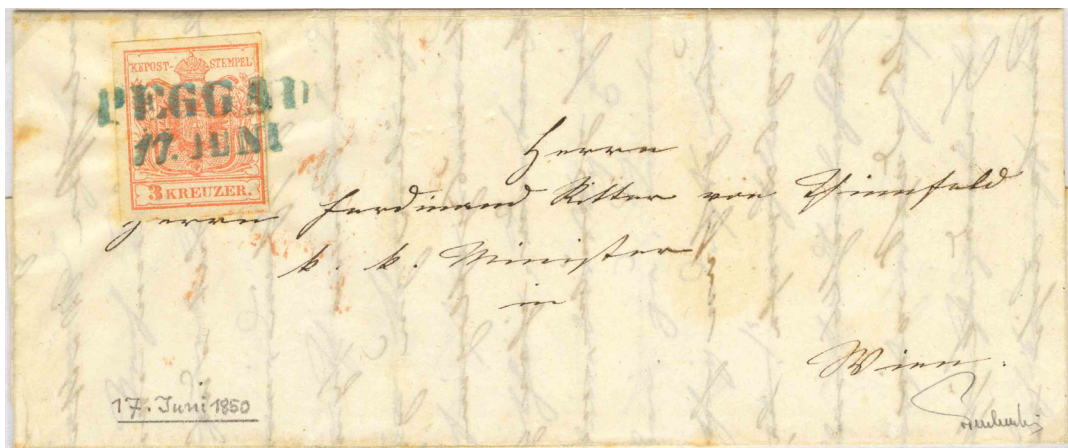 KKPOST-STEMPEL
PEGGAU
17. JUNI
3 KREUZER.
Herrn
Herrn Ferdinand Ritter von Thinnfeld
k. k. Minister
in
Wien.
17. Juni 1850